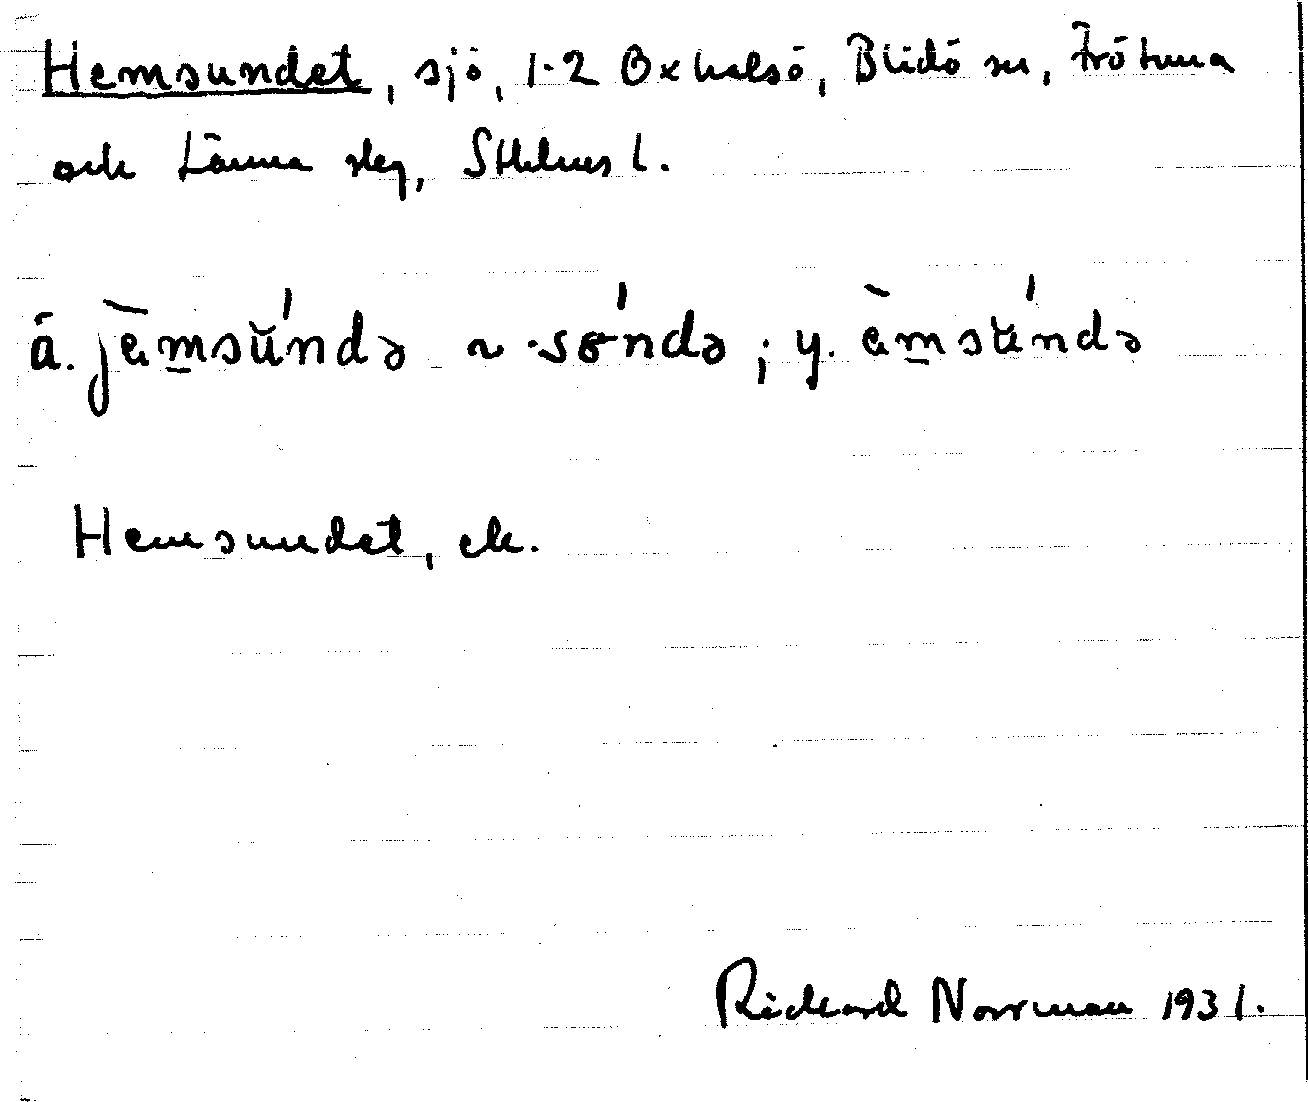 Hemsundet, sjö, 1-2 Oxhalsö, Blidö sn, Frötuna
och Länna slg, Sthlms l.
ä. jèmsŭ́ndə ~ -sɵ́ndə; y. èmsʉ́ndə
Hemsundet, ek.
Rickard Norrman 1931.